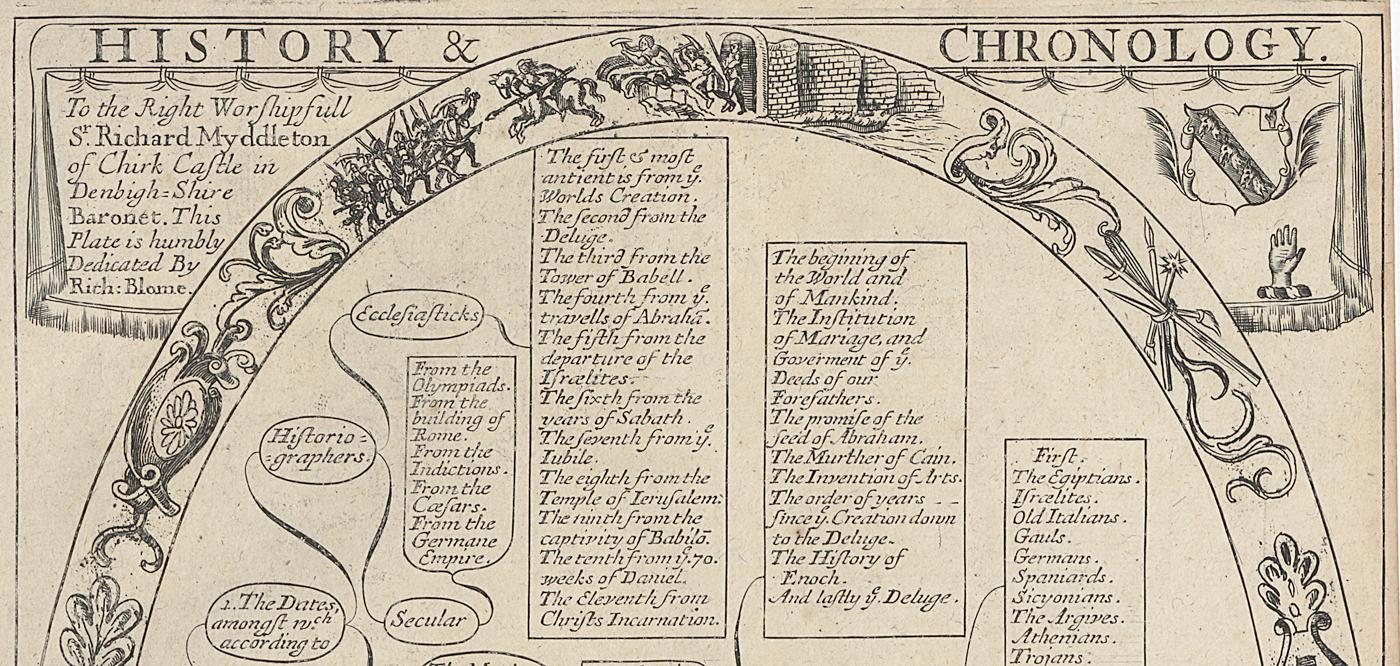 HISTORY & CHRONOLOGY.
To the Right Worſhipfull
Sr. Richard Myddleton
of Chirk Caſtle in
Denbigh=Shire
Baronet. This
Plate is humbly
Dedicated By
Rich: Blome.
Eccleſiaſticks
Hiſtorio=
=graphers.
1. The Dates,
amongſt wch
according to
Secular
From the
Olympiads.
From the
building of
Rome.
From the
Indictions.
From the
Cæſars.
From the
Germane
Empire.
The firſt & moſt
antient is from ye.
Worlds Creation.
The ſecond from the
Deluge.
The third from the
Tower of Babell.
The fourth from ye.
travells of Abrahā.
The fifth from the
departure of the
Iſrælites.
The ſixth from the
years of Sabath.
The ſeventh from ye.
Iubile.
The eighth from the
Temple of Ieruſalem:
The ninth from the
captivity of Babilō.
The tenth from ye. 70.
weeks of Daniel.
The Eleventh from
Chriſts Incarnation.
The begining of
the World and
of Mankind.
The Inſtitution
of Mariage, and
Goverment of ye.
Deeds of our
Forefathers.
The promiſe of the
ſeed of Abraham.
The Murther of Cain.
The Invention of Arts.
The order of years
ſince ye. Creation down
to the Deluge.
The Hiſtory of
Enoch.
And laſtly ye. Deluge.
Firſt.
The Egiptians.
Iſrælites.
Old Italians.
Gauls.
Germans.
Spaniards.
Sicyonians.
The Argives.
Athenians.
Trojans.